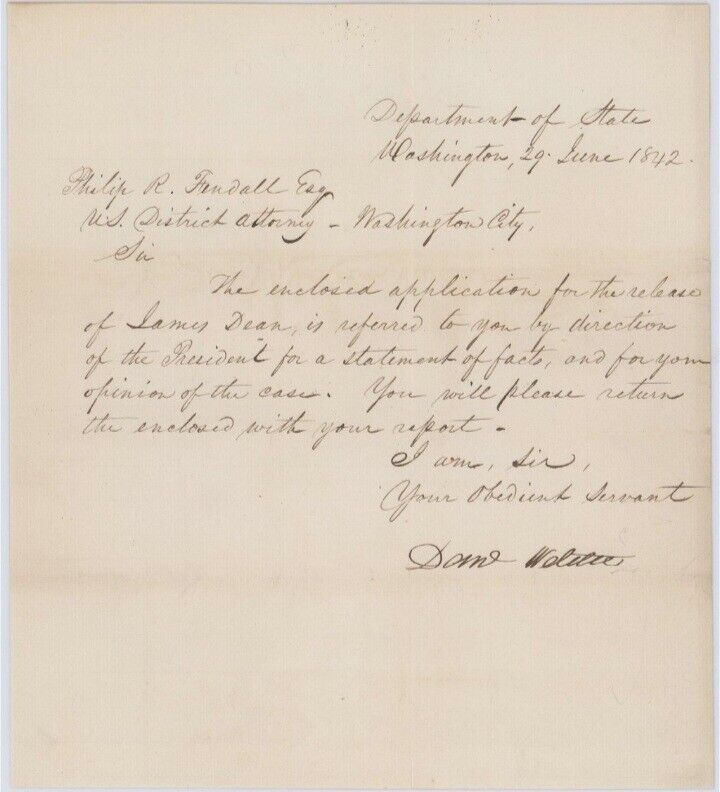 Department of State
Washington, 29. June 1842.
Philip R. Fendall Esq
U.S. District Attorney - Washington City,
Sir
The enclosed application for the release
of James Dean, is referred to you by direction
of the President for a statement of facts, and for your
opinion of the case. You will please return
the enclosed with your report -
I am, sir,
Your Obedient Servant
Danl Webster